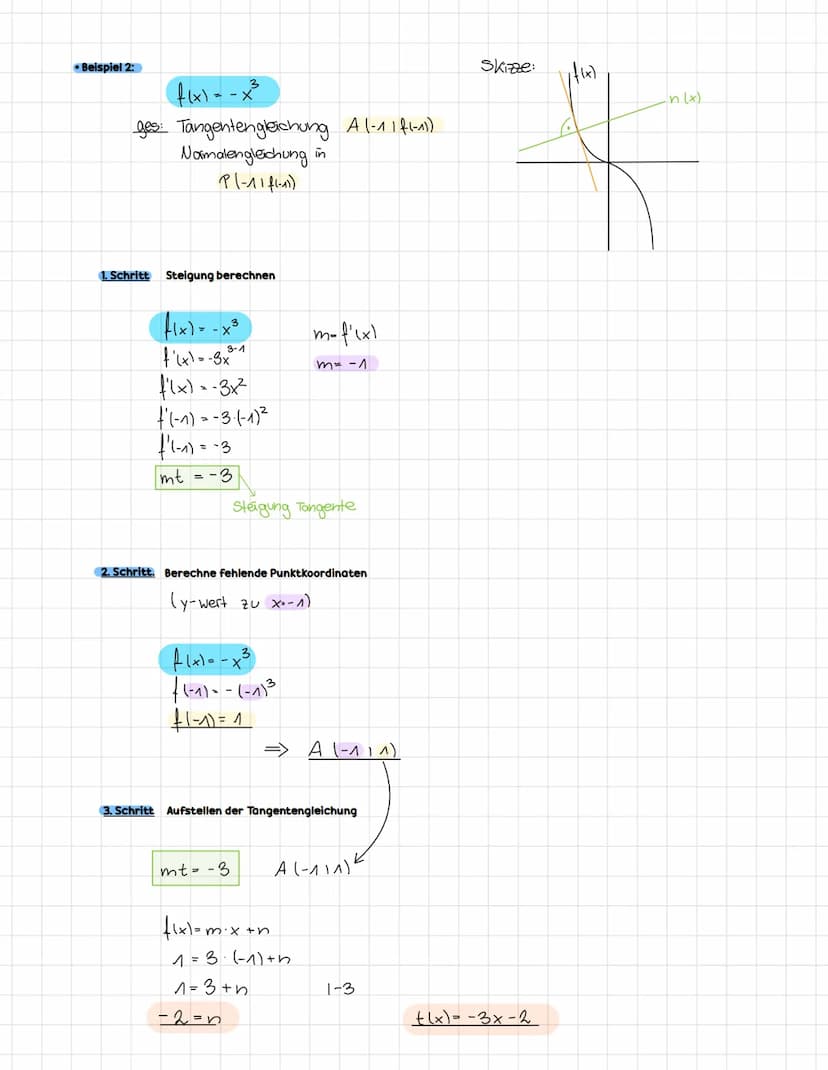 • Beispiel 2:
Skizze:
f(x)
n(x)
f(x) = -x³
ges: Tangentengleichung A(-1|f(-1))
Normalengleichung in
P(-1|f(-1))
1. Schritt Steigung berechnen
f(x) = -x³
m = f'(x)
f'(x) = -3x³⁻¹
m = -1
f'(x) = -3x²
f'(-1) = -3·(-1)²
f'(-1) = -3
mt = -3
Steigung Tangente
2. Schritt. Berechne fehlende Punktkoordinaten
(y-Wert zu x=-1)
f(x) = -x³
f(-1) = -(-1)³
f(-1) = 1
=> A(-1|1)
3. Schritt Aufstellen der Tangentengleichung
mt = -3 A(-1|1)
f(x) = m·x+n
1 = 3·(-1)+n
1 = 3+n |-3
-2 = n t(x) = -3x-2